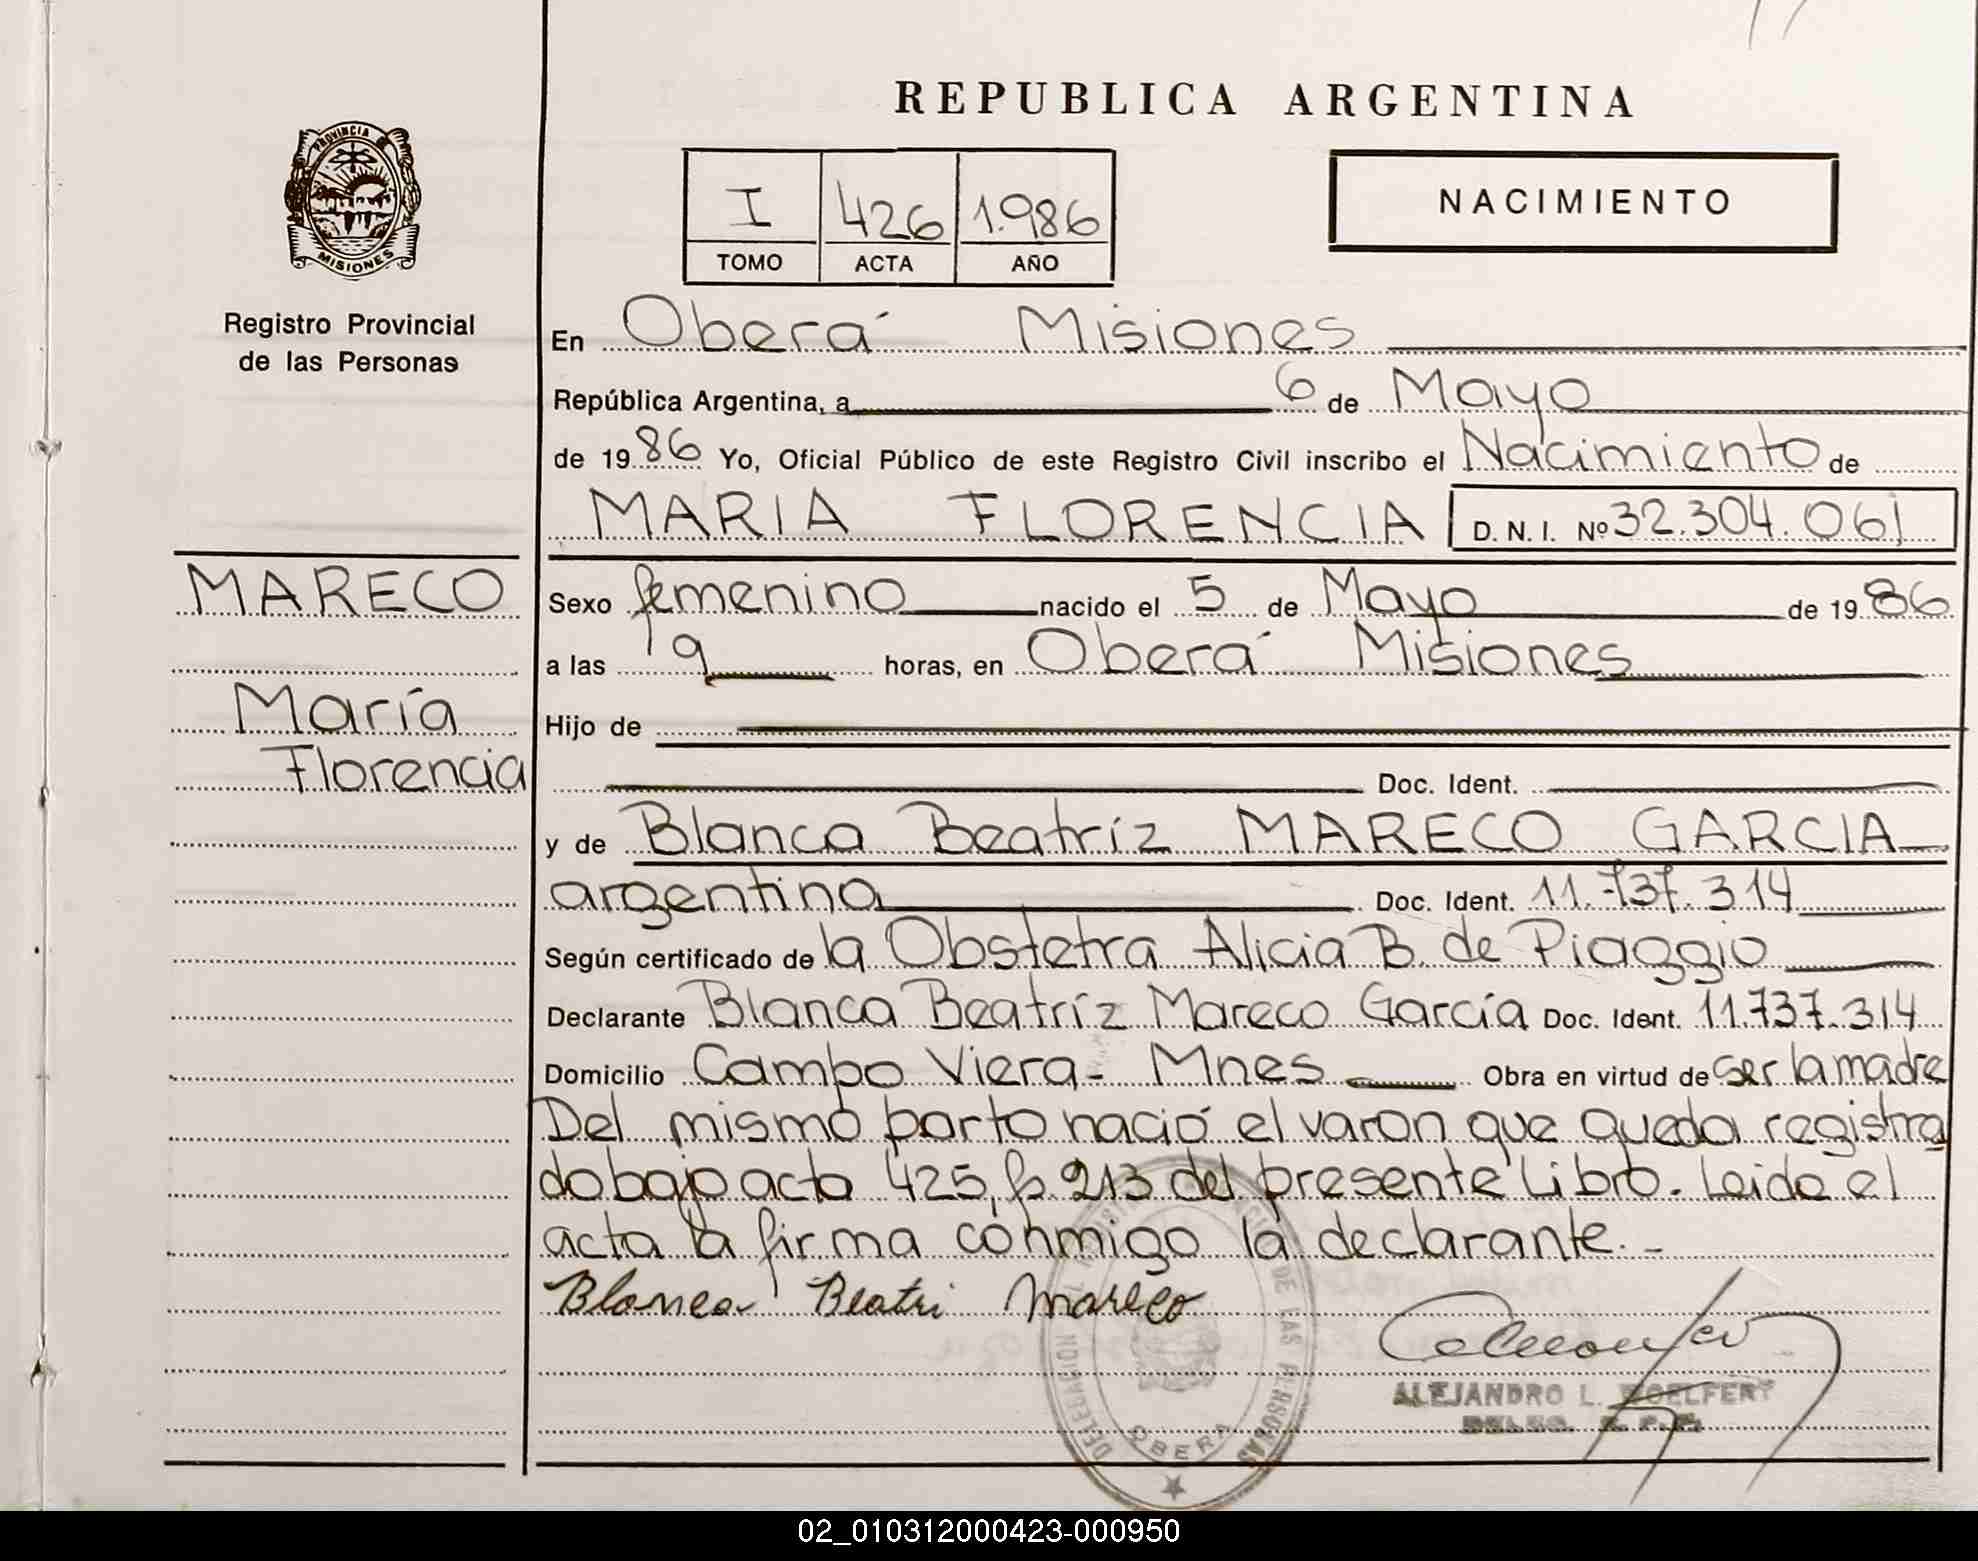 REPUBLICA ARGENTINA
PROVINCIA DE
MISIONES
Registro Provincial
de las Personas
I 426 1.986
TOMO ACTA AÑO
NACIMIENTO
En Oberá Misiones
República Argentina, a 6 de Mayo
de 1986 Yo, Oficial Público de este Registro Civil inscribo el Nacimiento de
MARIA FLORENCIA D. N. I. Nº 32.304.061
MARECO
María
Florencia
Sexo femenino nacido el 5 de Mayo de 1986
a las 9 horas, en Oberá Misiones
Hijo de
Doc. Ident.
y de Blanca Beatríz MARECO GARCIA
argentina Doc. Ident. 11.737.314
Según certificado de la Obstetra Alicia B. de Piaggio
Declarante Blanca Beatríz Mareco García Doc. Ident. 11.737.314
Domicilio Campo Viera - Mnes Obra en virtud de ser la madre
Del mismo parto nació el varon que queda registra
do bajo acta 425, fs. 213 del presente Libro. Leida el
acta la firma conmigo la declarante. -
Blanca Beatri Mareco
ALEJANDRO L. WOELFERT
DELEG. R. P. P.
DE LAS PERSONAS
OBERA
02_010312000423-000950